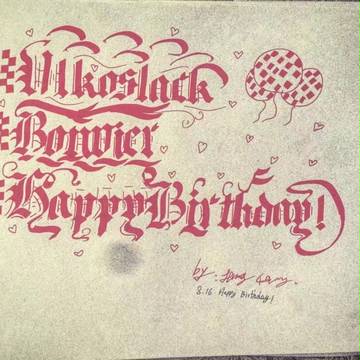 Vlkoslack
Bonvier
Happy Birthday!
by.
8.16 Happy Birthday!